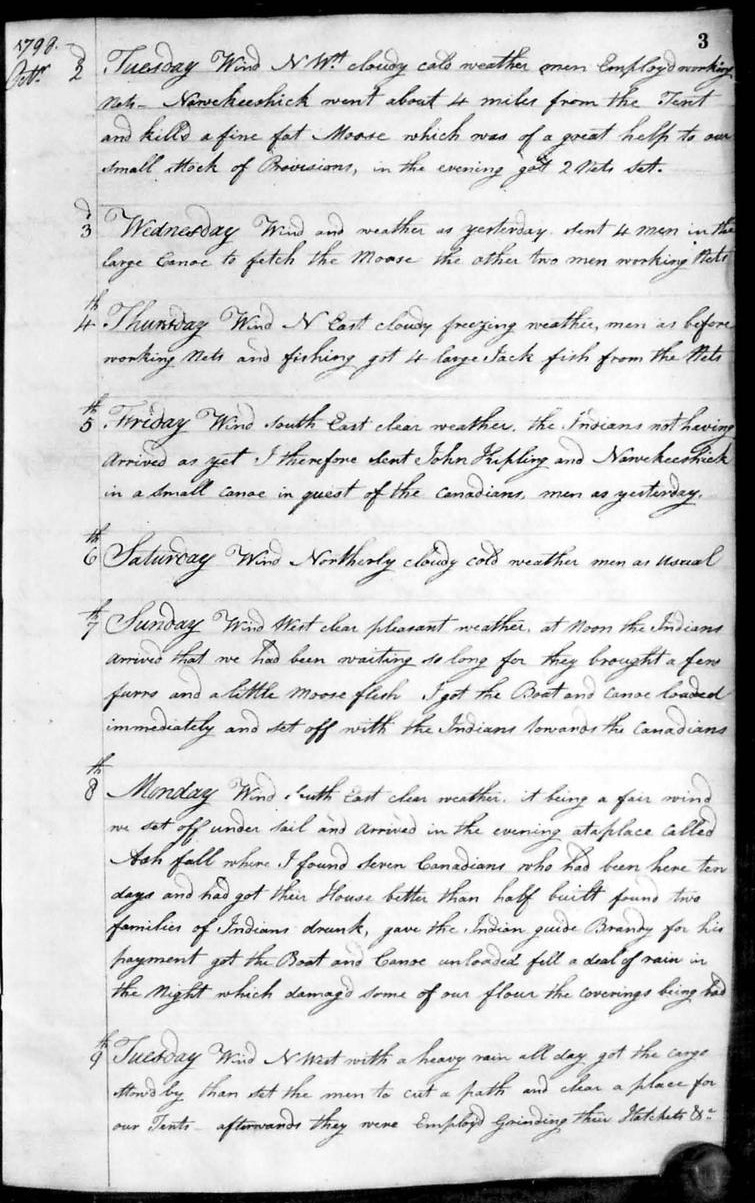 3
1798.
Octr.
2d Tuesday Wind N Wt cloudy cold weather men Employd working
Nets - Nawekeeshick went about 4 miles from the Tent
and killd a fine fat Moose which was of a great help to our
small stock of Provisions, in the evening got 2 Nets set.
3d Wednesday Wind and weather as yesterday. sent 4 men in the
large Canoe to fetch the Moose the other two men working Nets
4th Thursday Wind N East cloudy freezing weather, men as before
working Nets and fishing got 4 large Jack fish from the Nets
5th Friday Wind South East clear weather. the Indians not having
arrived as yet I therefore sent John Kipling and Nawekeeshick
in a small canoe in quest of the Canadians. men as yesterday.
6th Saturday Wind Northerly cloudy cold weather men as usual
7th Sunday Wind West clear pleasant weather. at Noon the Indians
arrived that we had been waiting so long for they brought a few
furrs and a little Moose flesh I got the Boat and Canoe loaded
immediately and set off with the Indians towards the Canadians
8th Monday Wind South East clear weather. it being a fair wind
we set off under sail and arrived in the evening at a place called
Ash fall where I found seven Canadians who had been here ten
days and had got their House better than half built found two
families of Indians drunk, gave the Indian guide Brandy for his
payment got the Boat and Canoe unloaded fell a deal of rain in
the Night which damagd some of our flour the coverings being bad
9th Tuesday Wind N West with a heavy rain all day got the cargo
stowd by than set the men to cut a path and clear a place for
our Tents - afterwards they were Employd Grinding their Hatchets &c